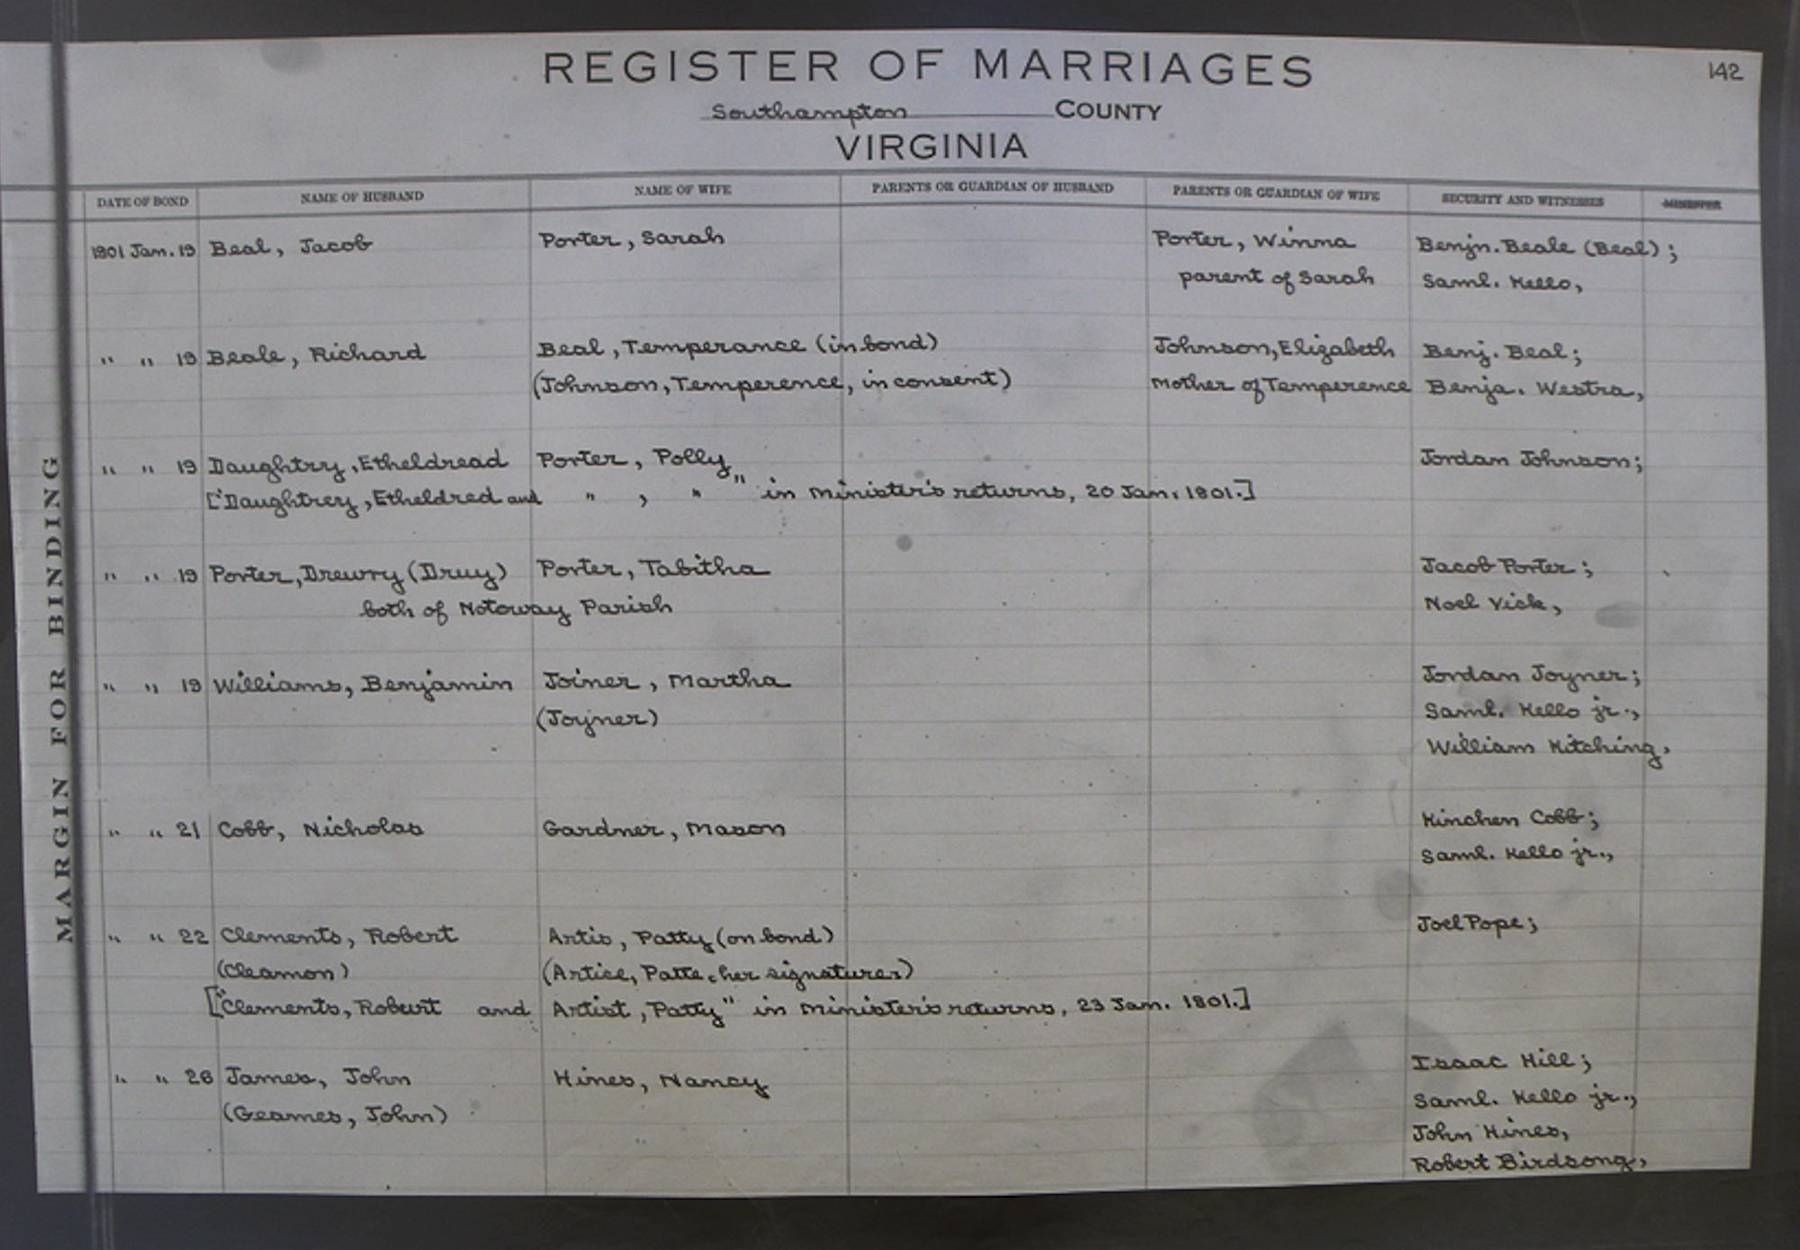 REGISTER OF MARRIAGES
142
Southampton COUNTY
VIRGINIA
DATE OF BOND NAME OF HUSBAND NAME OF WIFE PARENTS OR GUARDIAN OF HUSBAND PARENTS OR GUARDIAN OF WIFE SECURITY AND WITNESSES MINISTER
1801 Jan. 19 Beal, Jacob Porter, Sarah Porter, Winna Benjn. Beale (Beal);
parent of Sarah Saml. Kello,
" " 19 Beale, Richard Beal, Temperance (in bond) Johnson, Elizabeth Benj. Beal;
(Johnson, Temperence, in consent) Mother of Temperence Benja. Westra,
" " 19 Daughtry, Etheldread Porter, Polly Jordan Johnson;
["Daughtrey, Etheldred and " , " " in Minister's returns, 20 Jan. 1801.]
" " 19 Porter, Drewry (Druy) Porter, Tabitha Jacob Porter;
both of Notoway Parish Noel Vick,
" " 19 Williams, Benjamin Joiner, Martha Jordan Joyner;
(Joyner) Saml. Kello jr.,
William Kitching,
" " 21 Cobb, Nicholas Gardner, Mason Kinchen Cobb;
Saml. Kello jr.,
" " 22 Clements, Robert Artis, Patty (on bond) Joel Pope;
(Cleamon) (Artice, Patte, her signature.)
["Clements, Robert and Artist, Patty" in Minister's returns, 23 Jan. 1801.]
" " 26 James, John Hines, Nancy Isaac Hill;
(Geames, John) Saml. Kello jr.,
John Hines,
Robert Birdsong,
MARGIN FOR BINDING